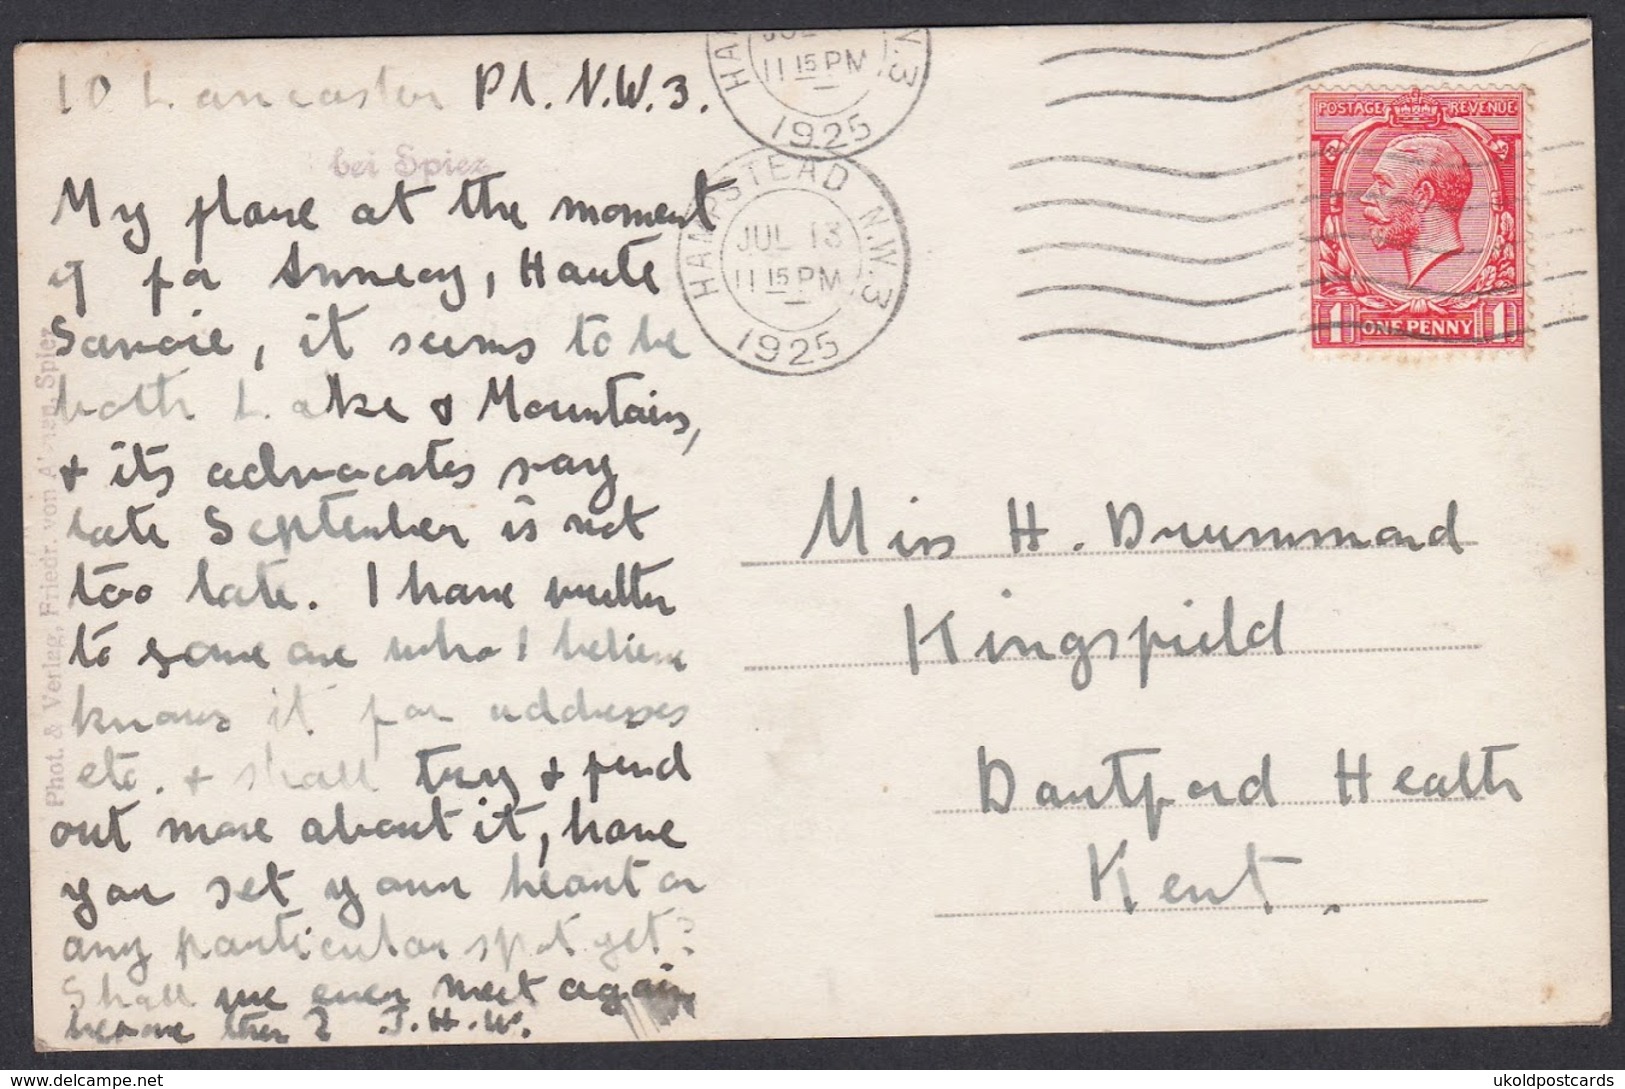 10 Lancaster Pl. N.W.3.
bei Spiez
My plane at the moment
is for Annecy, Haute
Savoie, it seems to be
both Lake & Mountains,
& its advocates say
late September is not
too late. I have written
to some one who I believe
knows it for addresses
etc. & shall try & find
out more about it, have
you set your heart on
any particular spot yet?
Shall we ever meet again
before then? J.H.W.
Phot. & Verlag, Friedr. von Spiez
HAM N.W.3
JUL
11 15 PM
1925
HAMPSTEAD N.W.3
JUL 13
11 15 PM
1925
POSTAGE REVENUE
1 ONE PENNY 1
Miss H. Drummond
Kingsfield
Dartford Heath
Kent.
ukoldpostcards on Delcampe